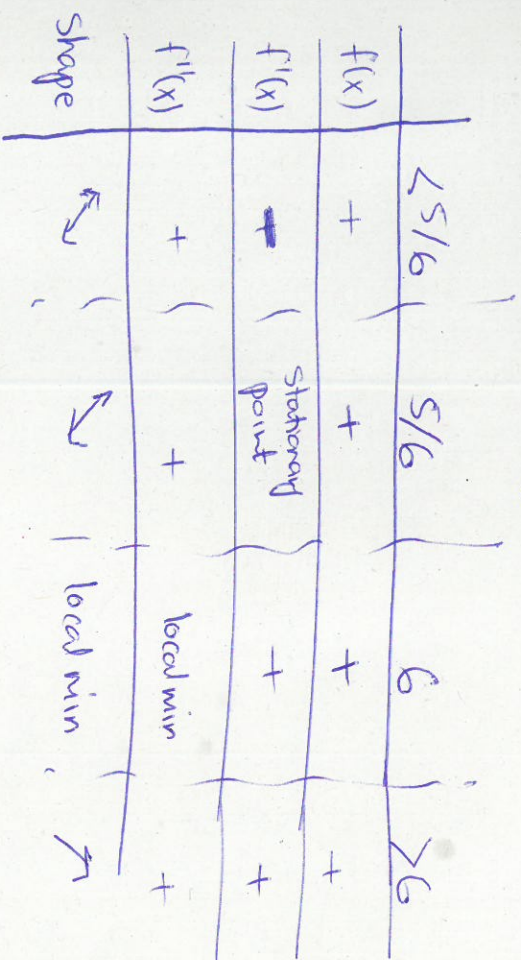 <5/6 5/6 6 >6
f(x) + + + +
f'(x) - stationary point + +
f''(x) + + local min +
shape ↘ ↘ local min ↗